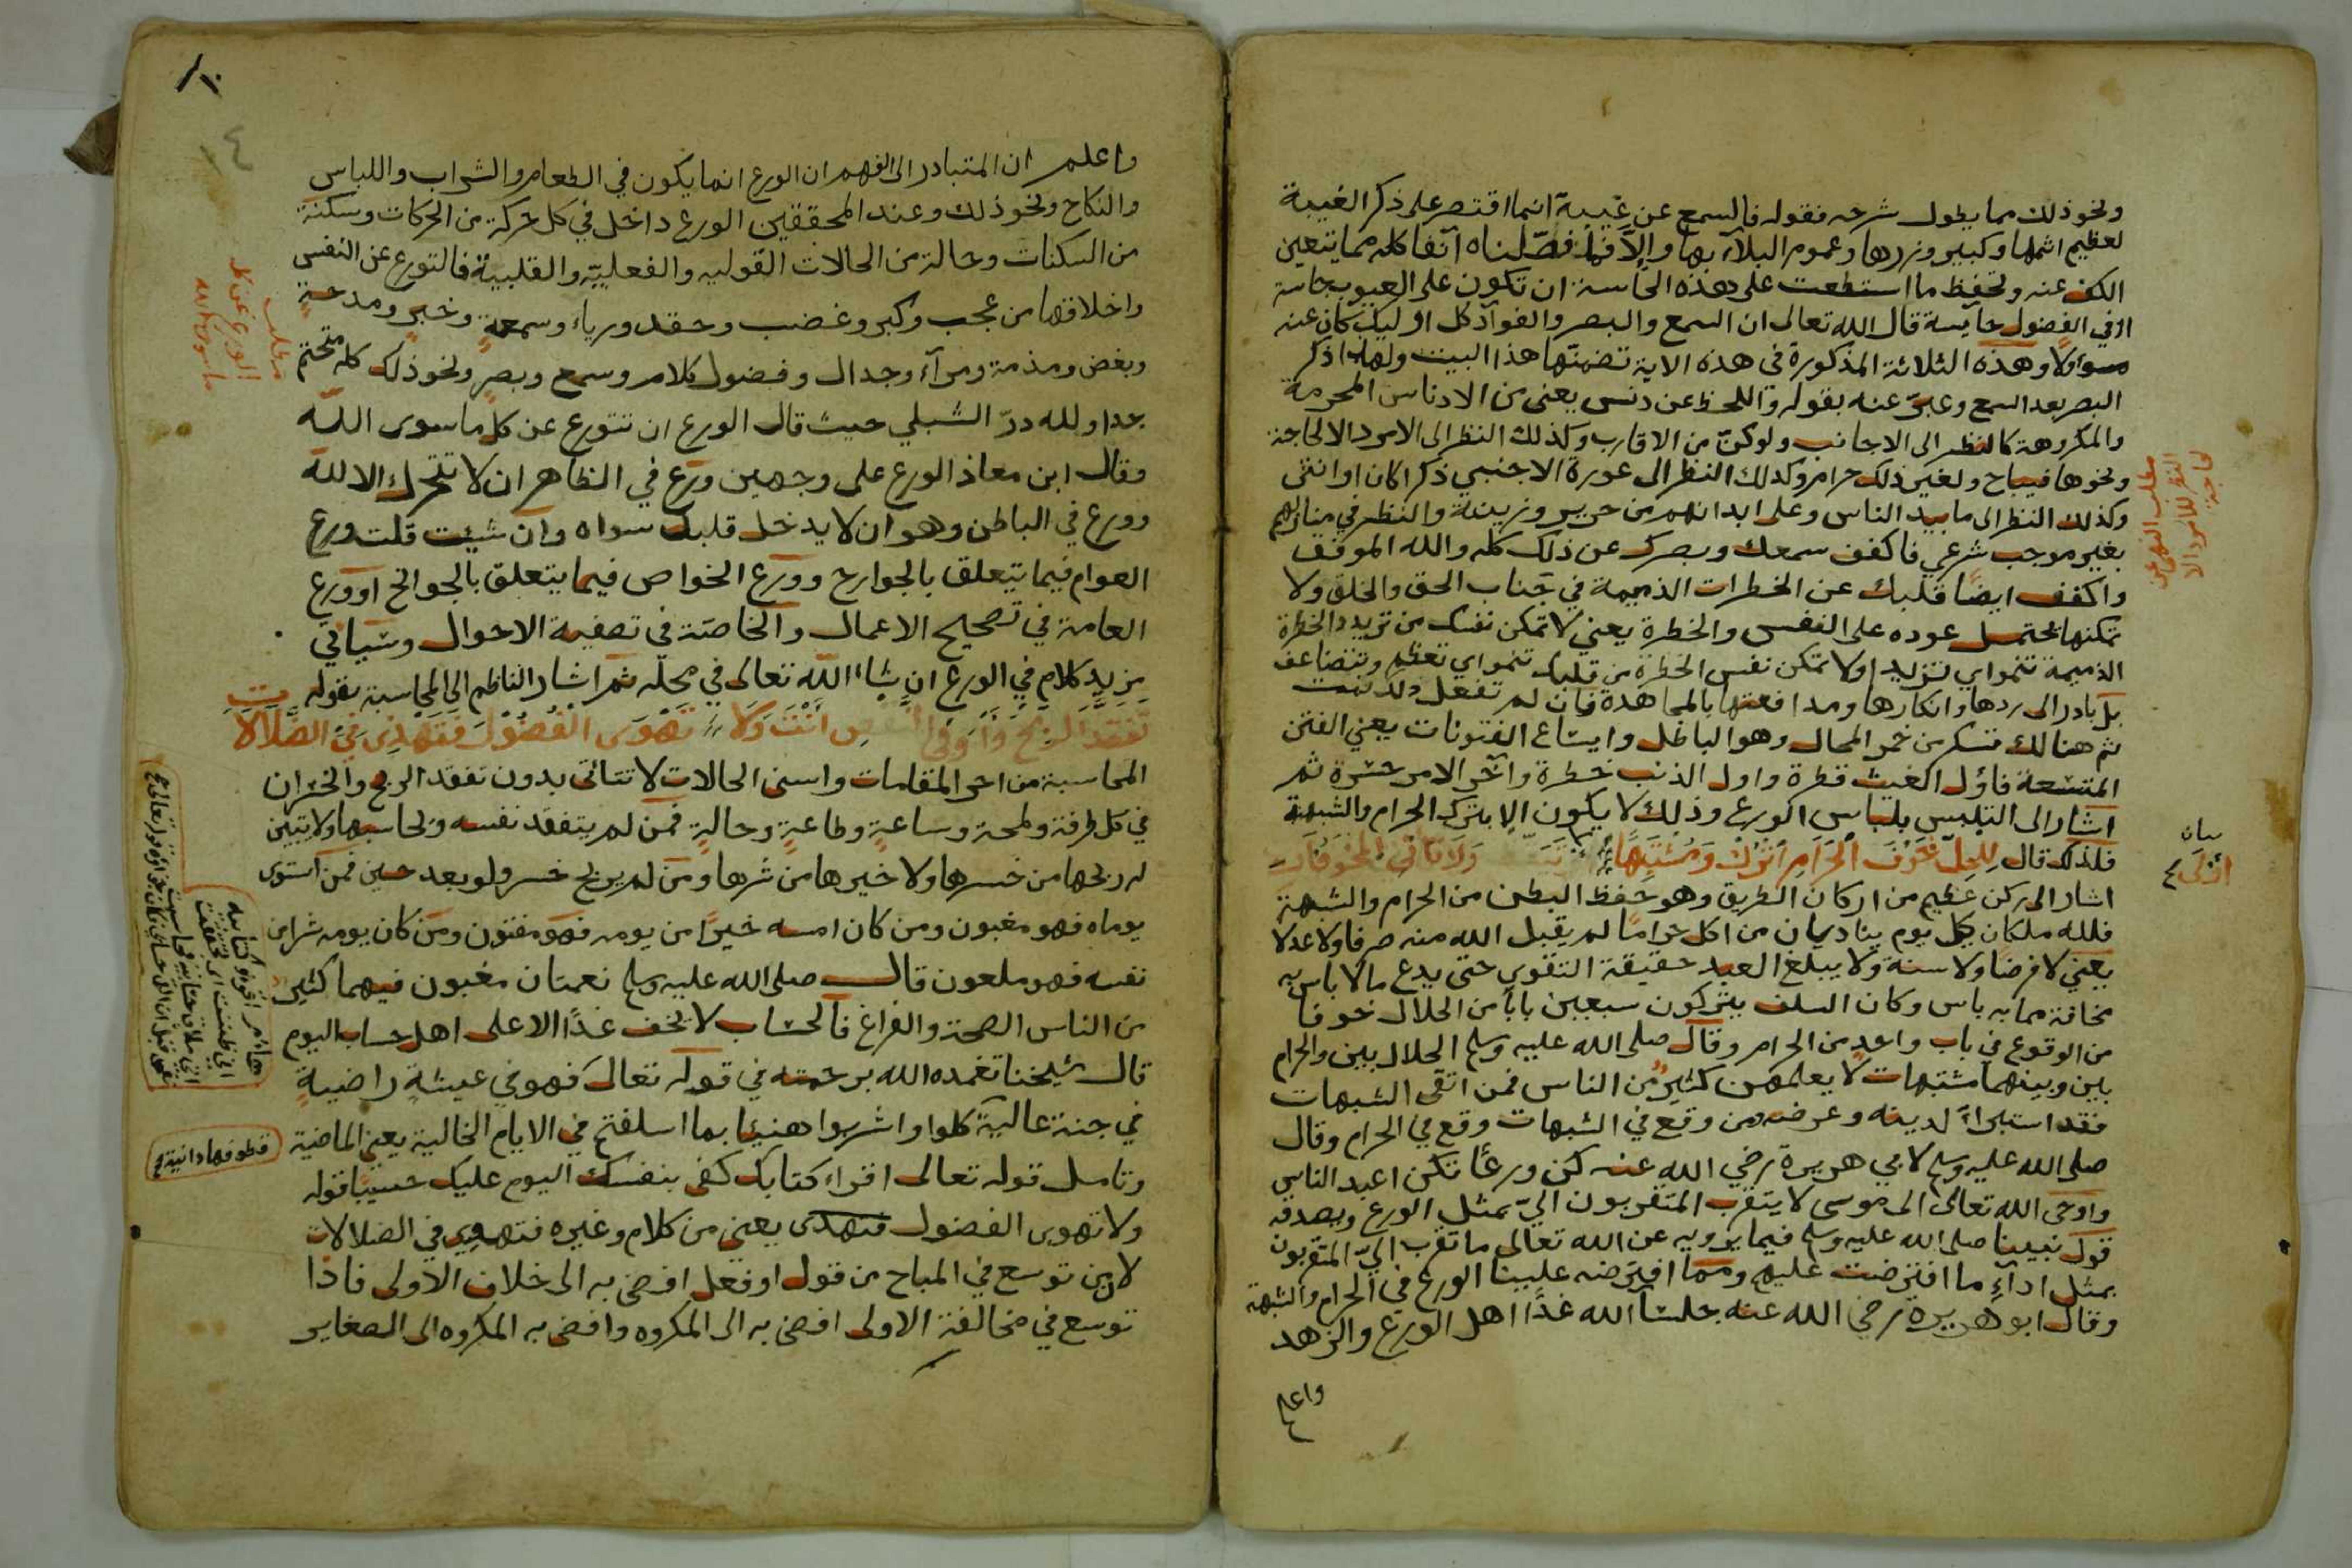 ونحو ذلك مما يطول شرحه فقوله فالسمع عن غيبة انما اقتصر على ذكر الغيبة
لعظيم اثمها وكبير وزرها وعموم البلاء بها وإلا فما فصّلناه آنفا كله مما يتعين
الكف عنه وتحفظ ما استطعت على هذه الحاسة ان تكون على العيوب جاسة
او في الفضول حايسة قال الله تعالى ان السمع والبصر والفوآد كل اوليك كان عنه
مسؤلا وهذه الثلاثة المذكورة في هذه الاية تضمنها هذا البيت ولهذا ذكر
البصر بعد السمع وعبّر عنه بقوله واللحظ عن دنس يعني من الادناس المحرمة
والمكروهة كالنظر الى الاجانب ولو كنّ من الاقارب وكذلك النظر الى الامرد الا لحاجة
ونحوها فيباح ولغير ذلك حرام وكذلك النظر الى عورة الاجنبي ذكرا كان او انثى
وكذلك النظر الى ما بيد الناس وعلى ابدانهم من حرير وزينة والنظر في منازلهم
بغير موجب شرعي فاكفف سمعك وبصرك عن ذلك كله والله الموفق
واكفف ايضًا قلبك عن الخطرات الذميمة في جناب الحق والخلق ولا
تمكنها يحتمل عوده على النفس والخطرة يعني لا تمكن نفسك من تريد الخطرة
الذميمة تنمو اي تزيد او لا تمكن نفس الخطرة من قلبك تنمو اي تعظم وتتضاعف
بل بادر الى ردها وانكارها ومدافعتها بالمجاهدة فان لم تفعل
ثم هنالك تسكر من خمر المحال وهو الباطل وايشاع الفتونات يعني الفتن
المتشعة فاوّل الغيث قطرة واول الذنب خطرة وآخر الامر حشرة ثم
اشار الى التلبس بلباس الورع وذلك لا يكون الا بترك الحرام والشبهة
فلذلك قال لِلحِلّ فَحَرْفَ الْحَرَامِ اتْرُكْ وَمُشْتَبِهًا وَلَا تَأتي المخوفات
اشار الى ركن عظيم من اركان الطريق وهو حفظ البطن من الحرام والشبهة
فلله ملكان كل يوم يناديان من اكل حرامًا لم يقبل الله منه صرفا ولا عدلا
يعني لا فرضا ولا سنة ولا يبلغ العبد حقيقة التقوى حتى يدع ما لا باس به
مخافة مما به باس وكان السلف يتركون سبعين بابًا من الحلال خوفا
من الوقوع في باب واحد من الحرام وقال صلى الله عليه وسلم الحلال بين والحرام
بين وبينهما مشتبهات لا يعلمهن كثير من الناس فمن اتقى الشبهات
فقد استبراءَ لدينه وعرضه ومن وقع في الشبهات وقع في الحرام وقال
صلى الله عليه وسلم لابي هريرة رضي الله عنه كن ورعًا تكن اعبد الناس
واوحى الله تعالى الى موسى لا يتقرب المتقربون اليّ بمثل الورع ويصدقه
قول نبينا صلى الله عليه وسلم فيما يرويه عن الله تعالى ما تقرب اليّ المتقربون
بمثل اداءِ ما افترضت عليهم ومما افترضه علينا الورع في الحرام والشبهة
وقال ابو هريرة رضي الله عنه جلساء الله غدًا اهل الورع والزهد
واعلم
مطلب النهي عن
النظر للامرد الا
لحاجة
بيان
واعلم ان المتبادر الى الفهم ان الورع انما يكون في الطعام والشراب واللباس
والنكاح ونحو ذلك وعند المحققين الورع داخل في كل حركة من الحركات وسكنة
من السكنات وحالة من الحالات القولية والفعلية والقلبية فالتورع عن النفس
واخلاقها من عجب وكبر وغضب وحقد ورياء وسمعةٍ وخبرٍ ومدحةٍ
وبغض ومذمة ومرآء وجدال وفضول كلام وسمع وبصرٍ ونحو ذلك كله متحتم
جدا ولله درّ الشبلي حيث قال الورع ان تتورع عن كل ما سوى الله
وقال ابن معاذ الورع على وجهين ورع في الظاهر ان لا تتحرك الا لله
وورع في الباطن وهو ان لا يدخل قلبك سواه وان شيت قلت ورع
العوام فيما يتعلق بالجوارح وورع الخواص فيما يتعلق بالجوانح او ورع
العامة في تصحيح الاعمال والخاصّة في تصفية الاحوال وسياتي
مزيد كلام في الورع ان شاء الله تعالى في محلّه ثم اشار الناظم الى المحاسبة بقوله
تَفَقَّد الربحَ وَأوفى النفس أَنْتَ وَلَا تَهْوَى الْفُضُوْلَ فَتَهْذِى في الضَّلَالَا
المحاسبة من اجر المقامات واسنى الحالات لا تتاتى بدون تفقد الربح والخسران
في كل طرفة ولمحة وساعةٍ وطاعةٍ وحالةٍ فمن لم يتفقد نفسه ويحاسبها ولا يتبين
له ربحها من خسرها ولا خيرها من شرها ومن لم يربح خسر ولو بعد حين فمن استوى
يوماه فهو مغبون ومن كان امسه خيرًا من يومه فهو مفتون ومن كان يومه شرا من
نفسه فهو ملعون قال صلى الله عليه وسلم نعمتان مغبون فيهما كثير
من الناس الصحة والفراغ فالحساب لا يخف غدًا الا على اهل حساب اليوم
قال شيخنا تغمده الله برحمته في قوله تعالى فهو في عيشةٍ راضيةٍ
في جنة عالية كلوا واشربوا هنيئا بما اسلفتم في الايام الخالية يعني الماضية
وتامل قوله تعالى اقراء كتابك كفى بنفسك اليوم عليك حسيبًا قوله
ولا تهوى الفضول فتهذى يعني من كلام وغيره فتهوى في الضلالات
لان من توسع في المباح من قول او فعل افضى به الى خلاف الاولى فاذا
توسع في مخالفة الاولى افضى به الى المكروه وافضى به المكروه الى الصغاير
١٤
مطلب
الورع عن كل
ما سوى الله
هاؤم اقرؤ كتابيه
اني ظننت اي تحققت
اني ملاق حسابيه
قطوفها دانية